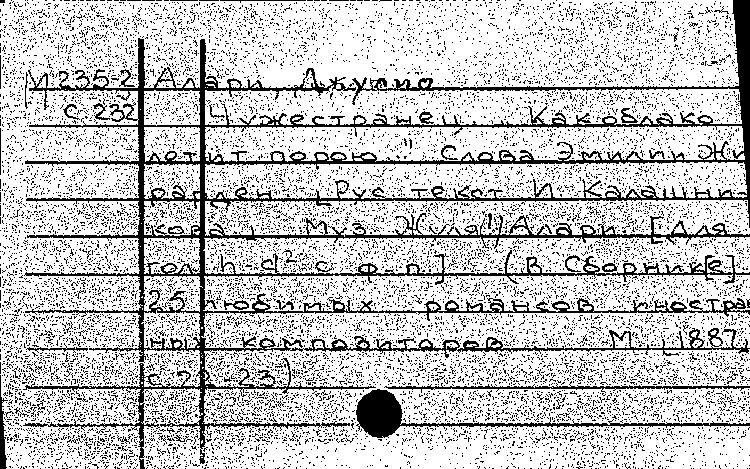 М 235-2 Алари, Джулио
с. 232 Чужестранец.... "Как облако
летит порою..." Слова Эмилии Жи
рарден. [Рус текст И. Калашни-
кова]. Муз Жуля(!) Алари. [Для
гол. h-d² с ф-п.] (В Сборник[е]:
25 любимых романсов иностран
ных композиторов М., [1887,
с. 22-23)